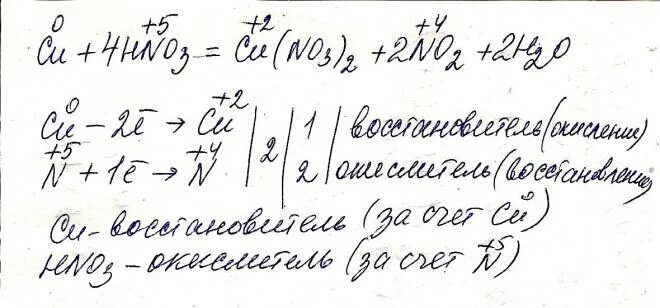 0 +5 +2 +4
Cu + 4HNO3 = Cu(NO3)2 + 2NO2 + 2H2O
0 +2
Cu – 2ē → Cu | 2 | 1 | восстановитель (окисление)
+5 +4
N + 1ē → N | 2 окислитель (восстановление)
0
Cu - восстановитель (за счет Cu)
+5
HNO3 – окислитель (за счет N)